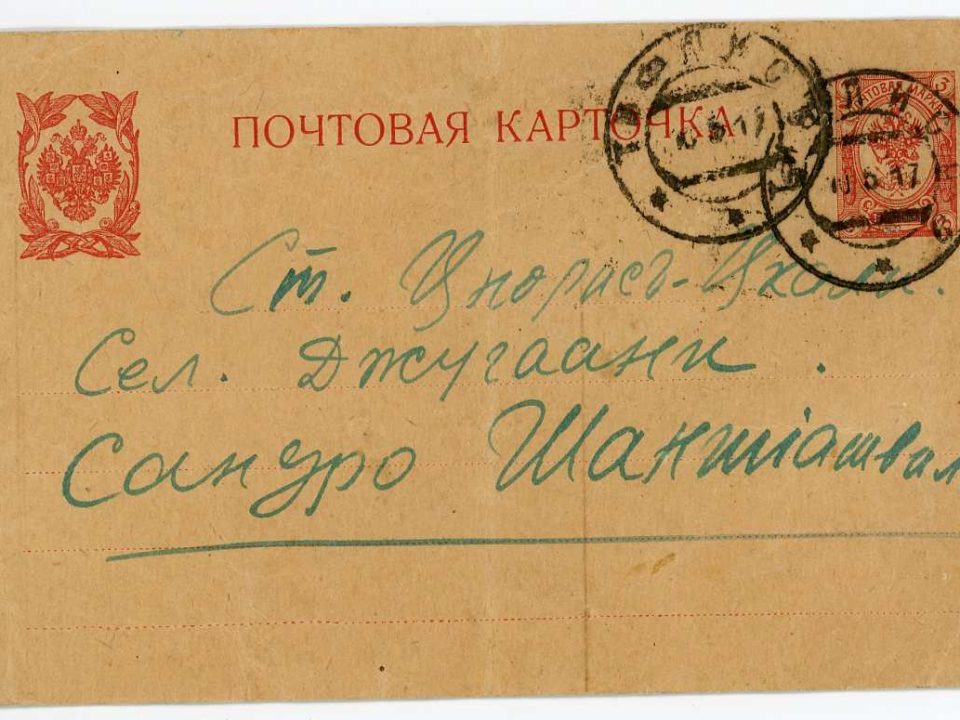 ПОЧТОВАЯ КАРТОЧКА
ТИФЛИСЪ
10 6 17
10 6 17
3
ПОЧТОВАЯ МАРКА
Ст. Цнорисъ-Цхали.
Сел. Джугаани.
Сандро Шаншіашвили